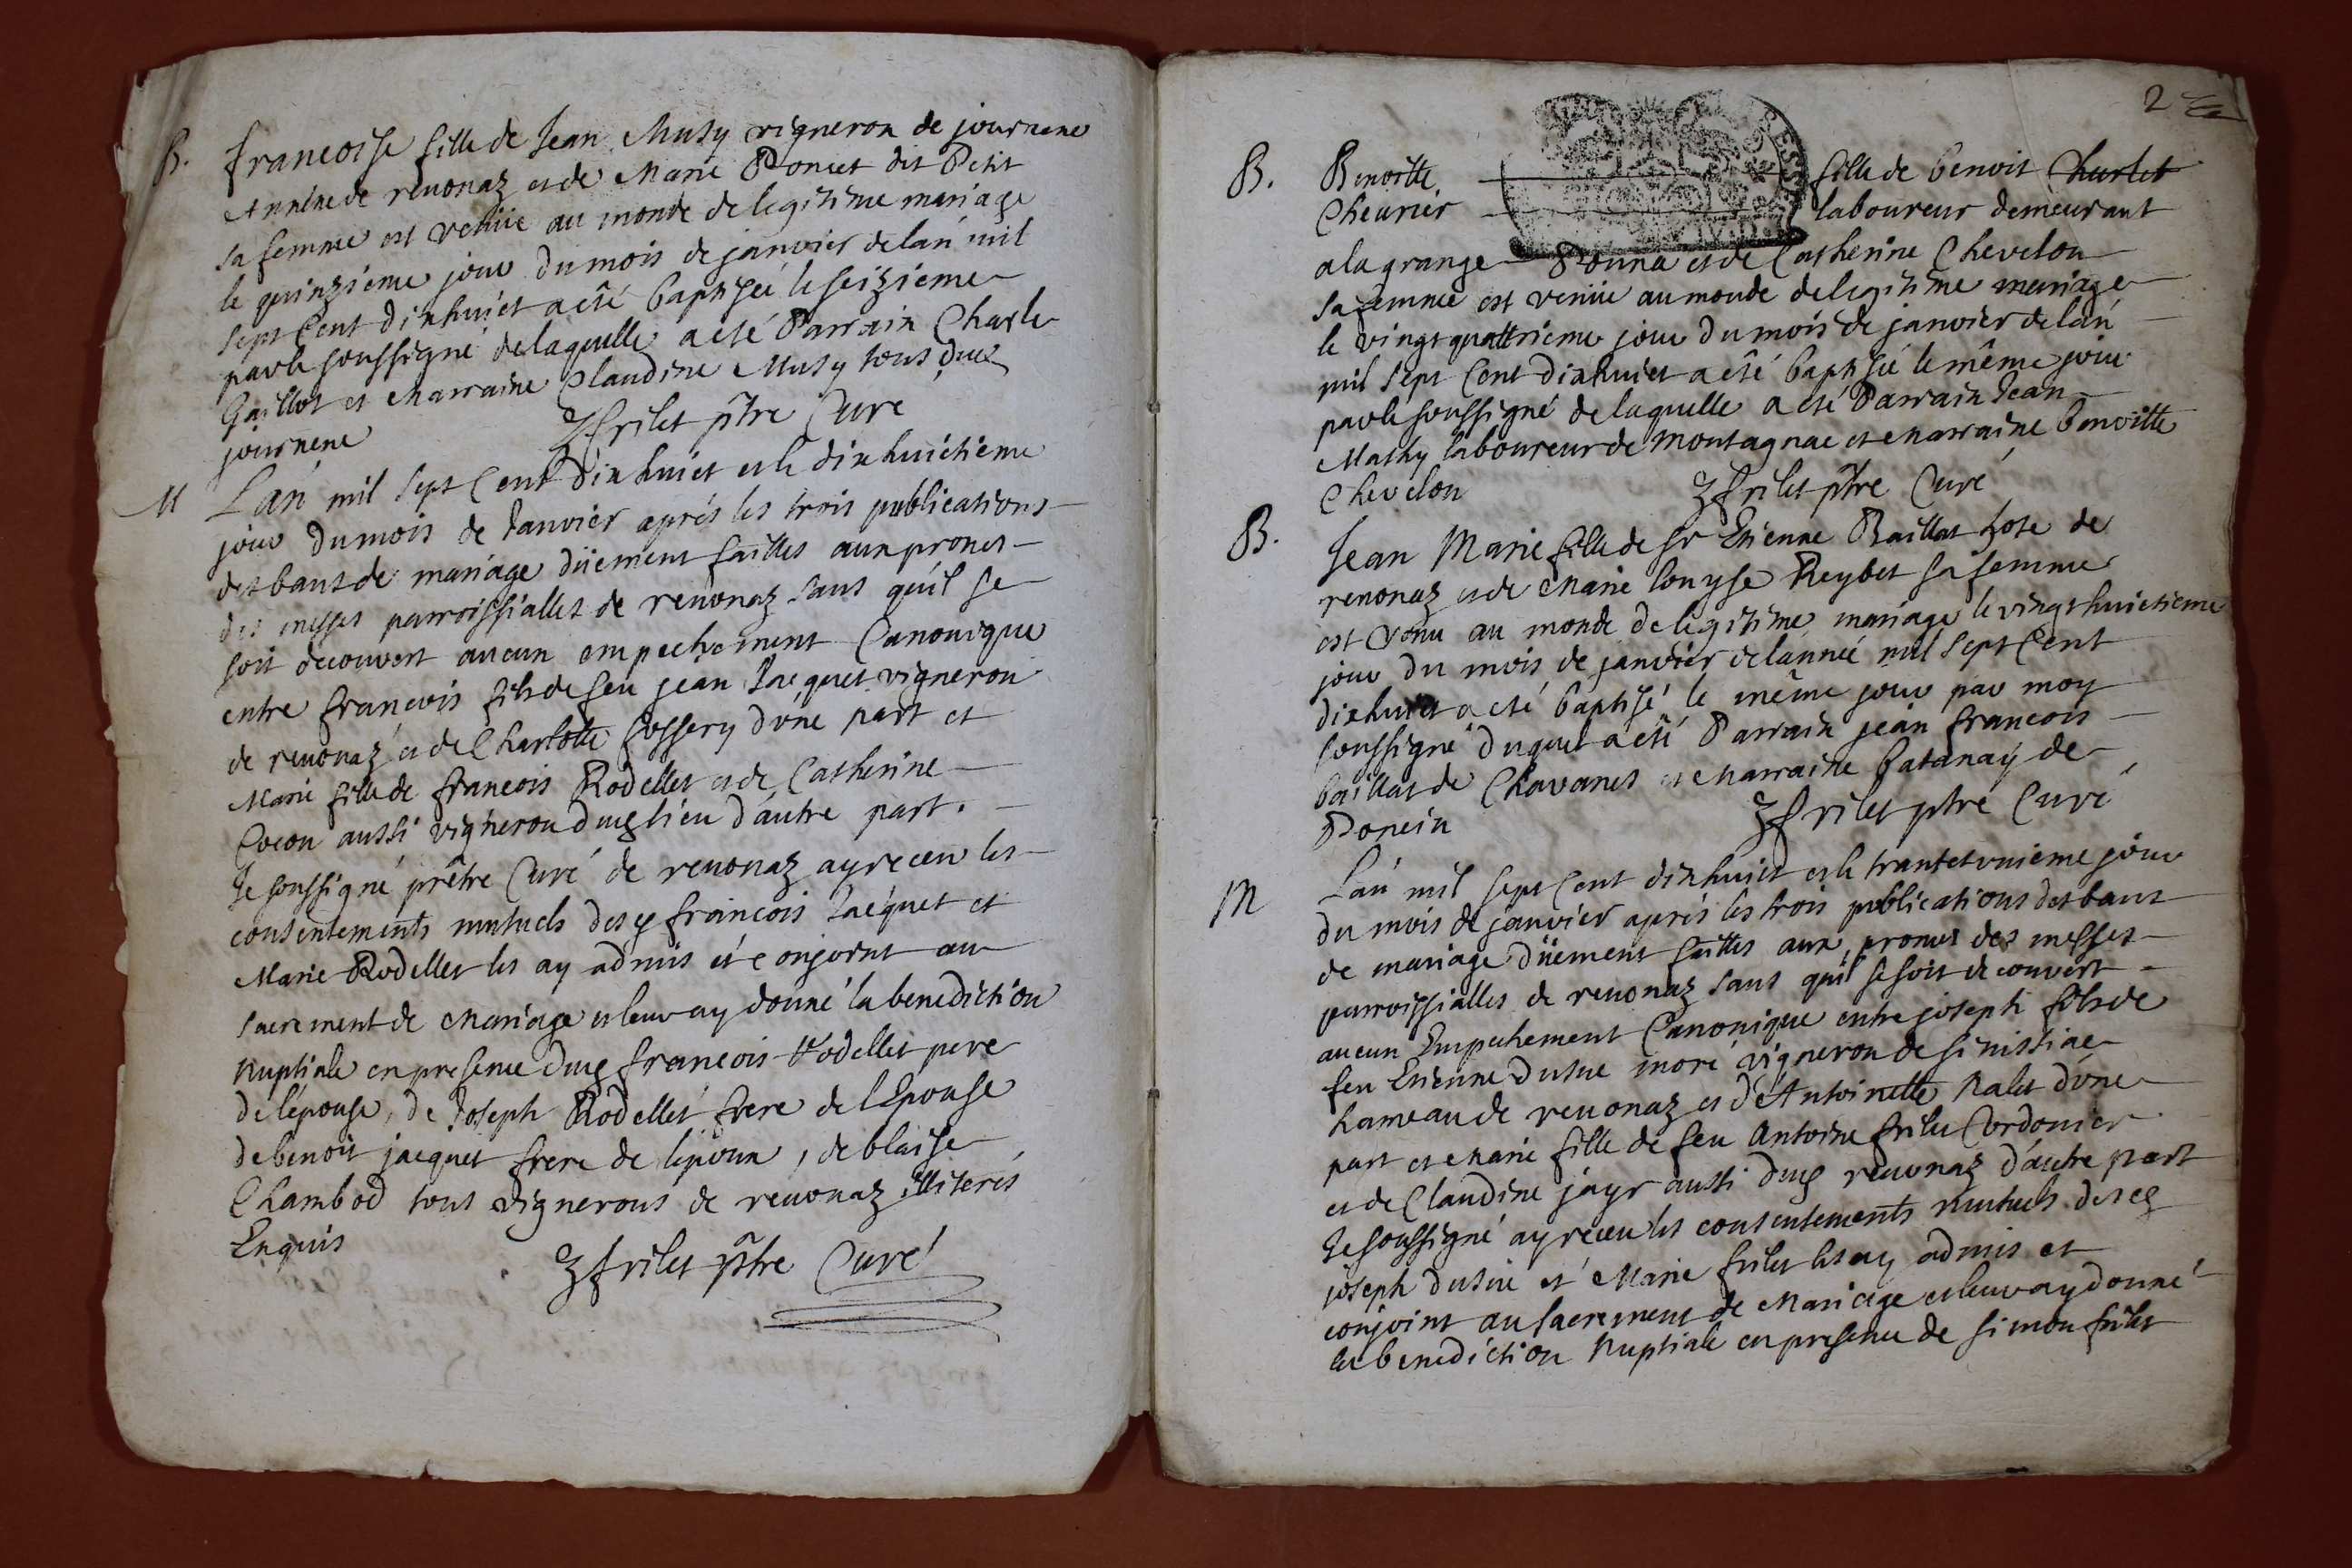 B. francoise fille de Jean Musy vigneron de journene
Annéxe de reuonaz et de Marie Poncet dit Petit
sa femme est venüe au monde de legitime mariage
le quinzieme jour du mois de janvier de lan mil
sept cent dixhuict a eté baptisée le seizieme
par le soussigné de laquelle a eté Parrain Charle
Gaillot et Marraine Claudine Musy tous dud
journene
Zfrilet ptre Curé
M Lan mil sept cent dix huict et le dixhuictieme
jour du mois de Janvier aprés les trois publications
des bans de mariage düement faittes aux prones
des messes parroissialles de reuonaz sans quil se
soit decouvert aucun empechement Canonique
entre francois fils de feu jean Jacquet vigneron
de reuonaz et de Charlotte Gossery dvne part et
Marie fille de francois Rodellet et de Catherine
Cocon aussi vigneron dud lieu dautre part.
Je soussigné prêtre Curé de reuonaz ay receu les
consentements mutuels desd francois Jacquet et
Marie Rodellet les ay admis et conjoint au
sacrement de Mariage et leur ay donné la benediction
Nuptiale en presence dud francois Rodellet pere
de lépouse, de Joseph Rodellet frere de lEpouse
de benoit jacquet frere de lepoux, de blaise
Chambod tous vignerons de reuonaz illiterés
Enquis
Zfrilet ptre Curé
2
B. Benoitte fille de benoit Charlet
Cheurier laboureur demeurant
a la grange Ponna et de Catherine Chevelon
sa femme est venüe au monde de legitime mariage
le vingt quattrieme jour du mois de janvier de lan
mil sept cent dixhuict a eté baptisée le même jour
par le soussigné de laquelle a eté Parrain Jean
Mathy laboureur de Montagnac et Marraine benoitte
Chevelon
Zfrilet ptre Curé
B. Jean Marie fille de sr Etienne Baillat hote de
reuonaz et de Marie Louyse Reybet sa femme
est venu au monde de legitime mariage le vingthuictieme
jour du mois de janvier de lannée mil sept cent
dixhuict a eté baptisé le même jour par moy
soussigné duquel a eté Parrain jean francois
baillat de Chavanes et Marraine batanay de
Poncin
Zfrilet ptre Curé
M Lan mil sept cent dixhuict et le trantetvnieme jour
du mois de janvier aprés les trois publications des bans
de mariage düement faittes aux prones des messes
parroissialles de reuonaz sans quil se soit decouvert
aucun Empechement Canonique entre joseph fils de
feu Etienne dusue moré vigneron de sinissiac
hameau de reuonaz et dAntoinette Nalet dvne
part et Marie fille de feu Antoine frilet Cordonier
et de Claudine jayr aussi dud reuonaz dautre part
Je soussigné ay receu les consentements mutuels desd
joseph dusue et Marie frilet les ay admis et
conjoint au sacrement de Mariage et leur ay donné
la benediction Nuptiale en presence de simon frilet